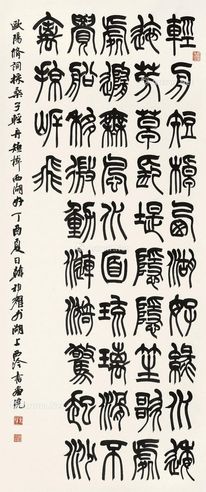 輕舟短棹西湖好綠水逶
迤芳草長堤隱隱笙歌處
處隨無風水面琉璃滑不
覺船移微動漣漪驚起沙
禽掠岸飛
歐陽脩詞採桑子輕舟短棹西湖好丁酉夏日韓於湖上西泠書畫院